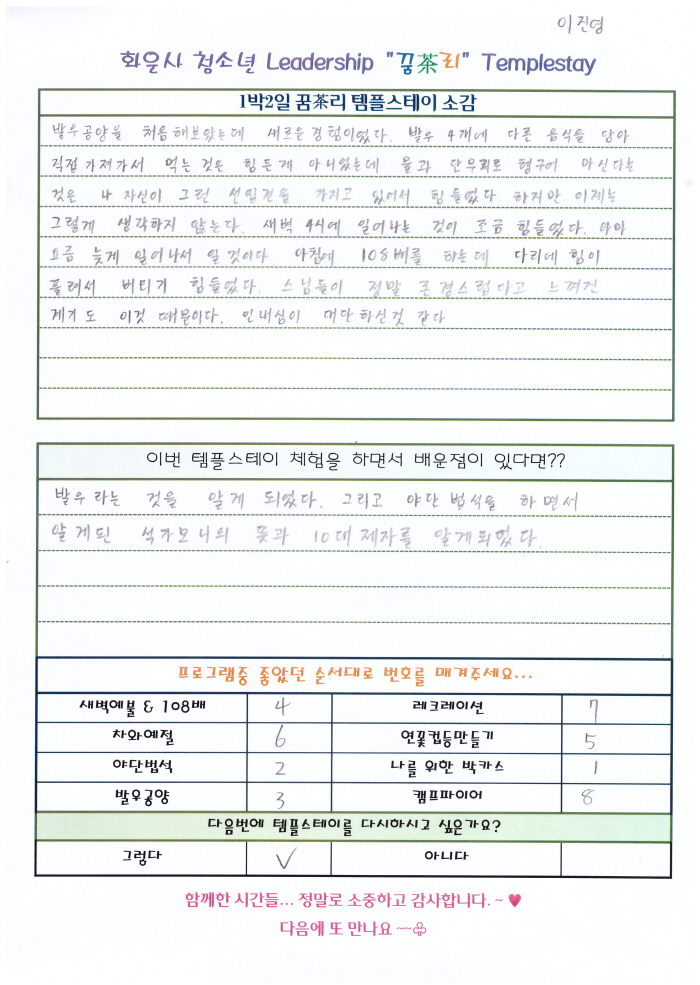 이진영
화운사 청소년 Leadership "꿈茶리" Templestay
1박2일 꿈茶리 템플스테이 소감
발우공양을 처음해보았는데 새로운 경험이었다. 발우 4개에 다른 음식을 담아
직접 가져가서 먹는 것은 힘든게 아니었는데 물과 단무지로 헹구어 마신다는
것은 나 자신이 그런 선입견을 가지고 있어서 힘들었다. 하지만 이제는
그렇게 생각하지 않는다. 새벽 4시에 일어나는 것이 조금 힘들었다. 아마
요즘 늦게 일어나서 일 것이다. 아침에 108배를 하는데 다리에 힘이
풀려서 버티기 힘들었다. 스님들이 정말 존경스럽다고 느껴진
계기도 이것 때문이다. 인내심이 대단하신것 같다
이번 템플스테이 체험을 하면서 배운점이 있다면??
발우라는 것을 알게 되었다. 그리고 야단법석을 하면서
알게된 석가모니의 뜻과 10대 제자를 알게되었다.
프로그램중 좋았던 순서대로 번호를 매겨주세요...
새벽예불 & 108배 4 레크레이션 7
차와예절 6 연꽃컵등만들기 5
야단법석 2 나를 위한 박카스 1
발우공양 3 캠프파이어 8
다음번에 템플스테이를 다시하시고 싶은가요?
그렇다 ✓ 아니다
함께한 시간들... 정말로 소중하고 감사합니다. ~ ♥
다음에 또 만나요 ~~♧